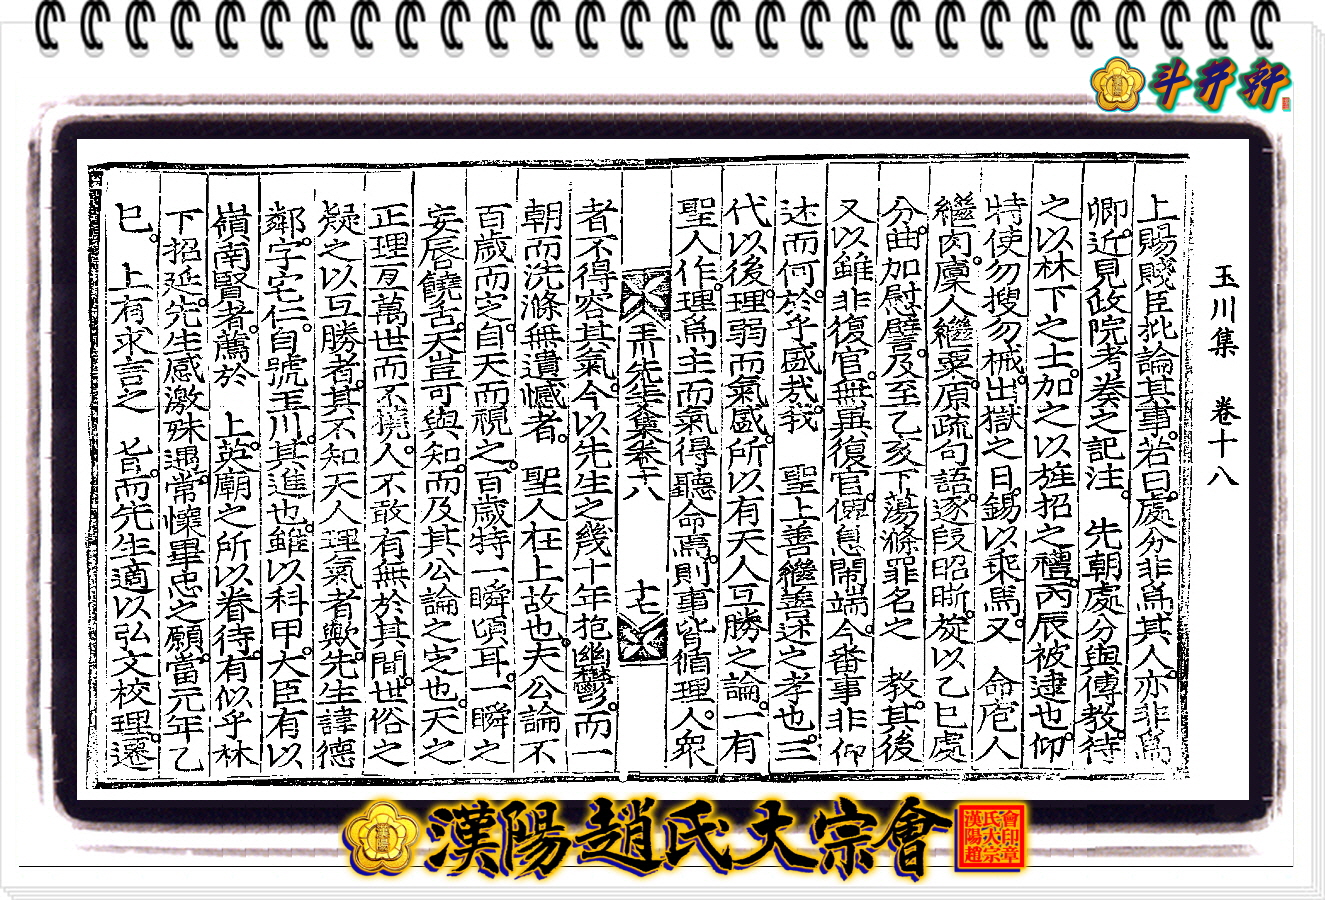 斗井軒
玉川集 卷十八
上賜賤臣批論其事若曰處分非爲其人亦非爲
卿近見政院考奏之記注 先朝處分與傅教待
之以林下之士加之以旌招之禮丙辰被逮也仰
特使勿搜勿械出獄之日錫以乘馬又 命庖人
繼肉廩人繼粟原疏句語逐段昭晣旋以乙巳處
分曲加慰譬及至乙亥下蕩滌罪名之 教其後
又以雖非復官無異復官偃息鬧端今番事非仰
述而何於乎盛哉我 聖上善繼善述之孝也三
代以後理弱而氣盛所以有天人互勝之論一有
聖人作理爲主而氣得聽命焉則事皆循理人衆
玉川先生集卷十八 十七
者不得容其氣今以先生之幾十年抱幽鬱而一
朝而洗滌無遺憾者 聖人在上故也夫公論不
百歲而定自天而視之百歲特一瞬頃耳一瞬之
妄唇饒舌天豈可與知而及其公論之定也天之
正理亙萬世而不撓人不敢有無於其間世俗之
疑之以互勝者其不知天人理氣者歟先生諱德
鄰字宅仁自號玉川其進也雖以科甲大臣有以
嶺南賢者薦於 上英廟之所以眷待有似乎林
下招延先生感激殊遇常懷畢忠之願當元年乙
巳 上有求言之 旨而先生適以弘文校理遷
漢陽趙氏大宗會
漢陽趙氏大宗會印章